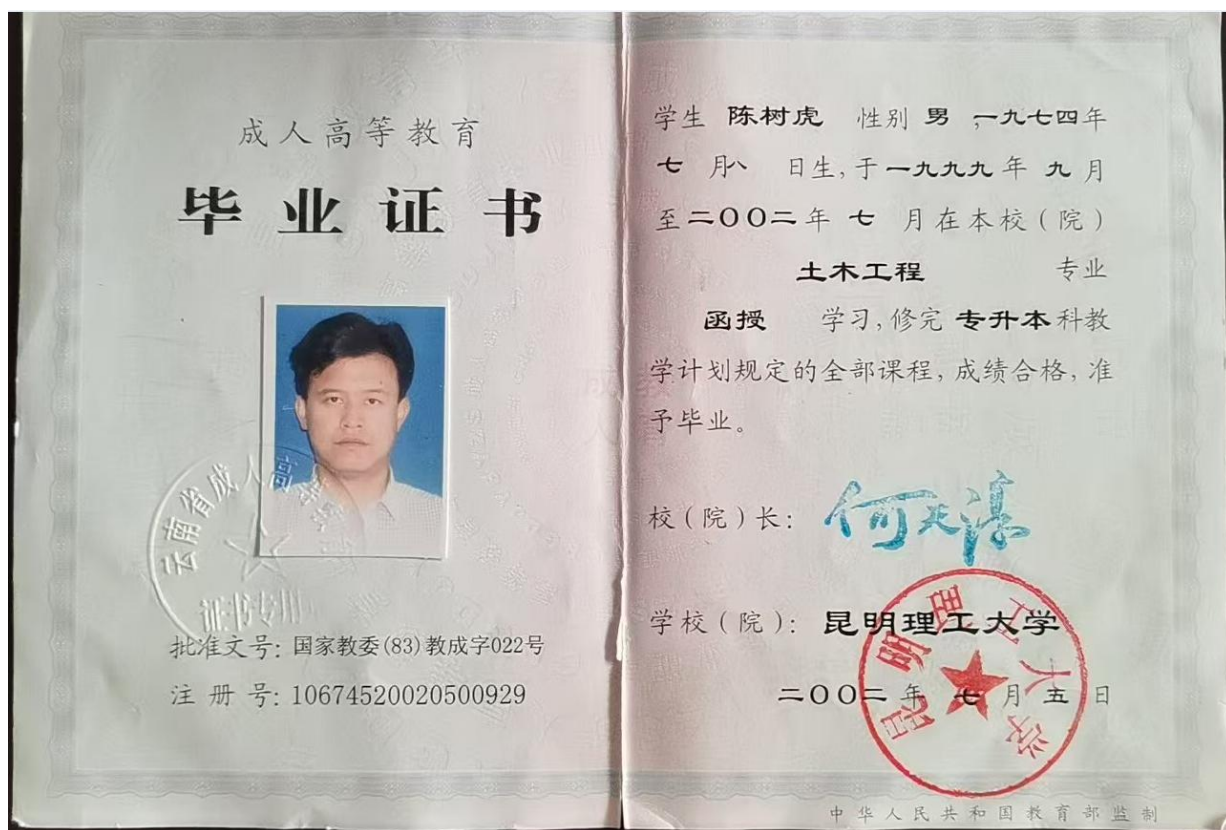 成人高等教育
毕业证书
云南省成人高
证书专用
批准文号：国家教委(83)教成字022号
注册号：10674520020500929
学生 陈树虎 性别 男，一九七四年
七 月八 日生，于一九九九年 九 月
至二〇〇二年 七 月在本校（院）
土木工程 专业
函授 学习，修完 专升本科教
学计划规定的全部课程，成绩合格，准
予毕业。
校（院）长：何天淳
学校（院）：昆明理工大学
昆明理工大学
二〇〇二年 七 月 五 日
中华人民共和国教育部监制